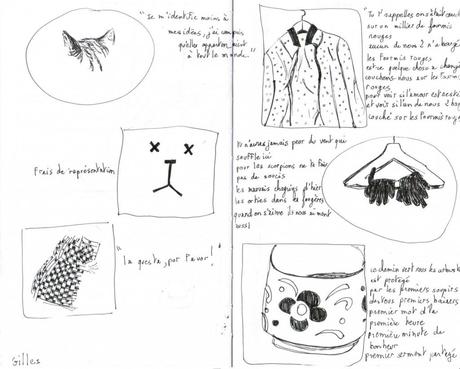 "Je m'identifie moins à
mes idées, j'ai compris
qu'elles appartiennent
à tout le monde..."
Frais de représentation
"la questa, por favor!"
Gilles
"Tu t'rappelles on s'était couché
sur un millier de fourmis
rouges
aucun de nous 2 n'a bougé
les fourmis rouges
est-ce que quelque chose a changé
couchons-nous sur les fourmis
rouges
pour voir si l'amour est
et voir si l'un de nous 2 bouge
couché sur les fourmis rouges
tu n'auras jamais peur du vent qui
souffle ici
pour les scorpions ne te fais
pas de soucis
les mauvais chagrins d'hier
les orties dans les fougères
quand on s'aime ils nous aiment
aussi
le chemin vers nous
est protégé
par les premiers soupirs
des tous premiers baisers
premier mot d'la
première heure
première minute de
bonheur
premier serment partagé